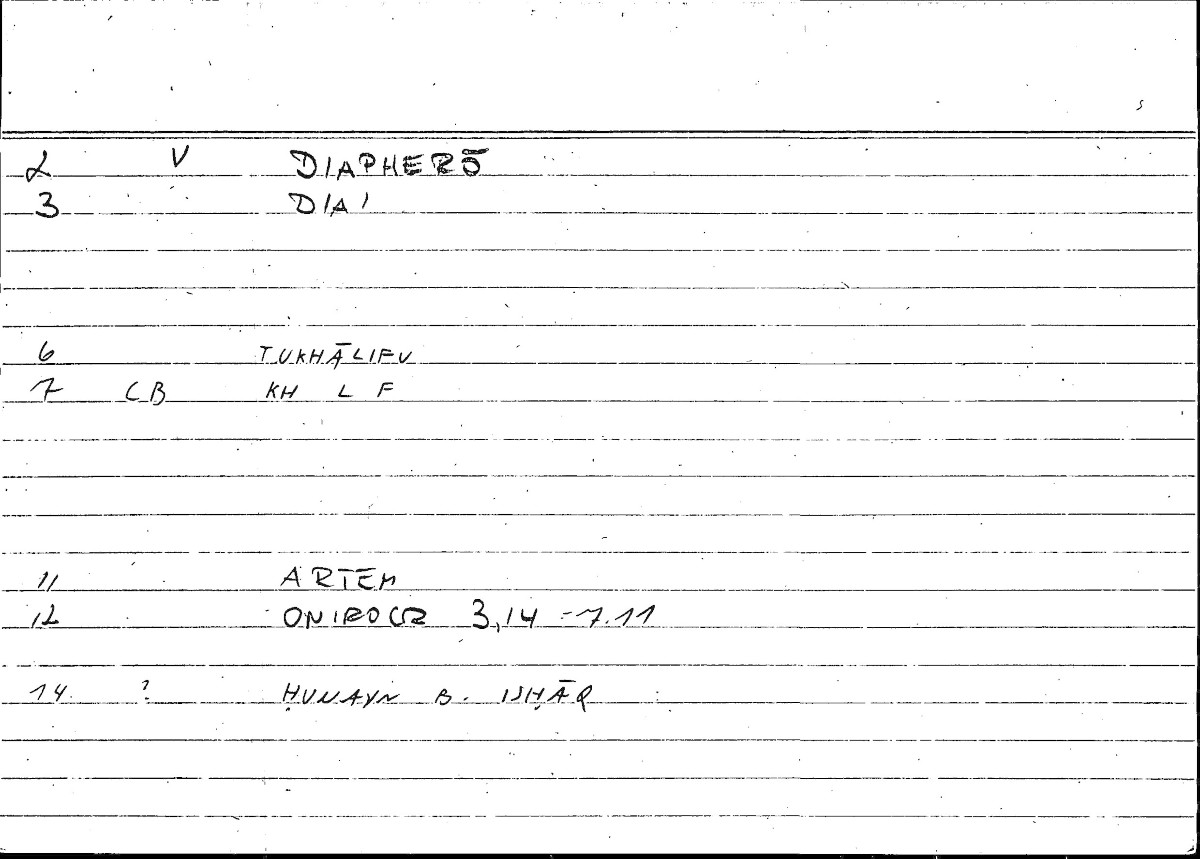 2 V DIAPHERŌ
3 DIA'
6 TUKHĀLIFU
7 CB KH L F
11 ARTEM
12 ONIROCR 3,14 - 7.11
14 ? ḤUNAYN B. ISḤĀQ